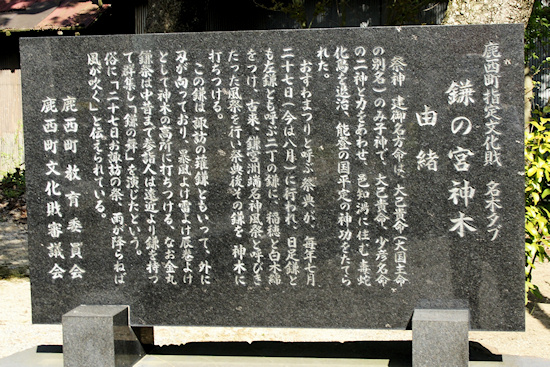 鹿西町指定文化財 名木タブ
鎌の宮神木
由緒
祭神 建御名方命は、大己貴命(大国主命
の別名)のみ子神で、大己貴命、少彦名命
の二神と力をあわせ、邑知潟に住む毒蛇
化鳥を退治、能登の国平定の神功をたてら
れた。
おすわまつりと呼ぶ祭典が、毎年七月
二十七日(今は八月)に行われ、日足鎌と
もた鎌とも呼ぶ二丁の鎌に、稲穂と白木綿
をつけ、古来、鎌宮洲端名神風祭と呼びき
たった風祭を行い祭典後その鎌を 神木に
打ちつける。
この鎌は、諏訪の薙鎌ともいって、外に
刃が向ており、暴風よけ雷よけ辰巻よけ
として神木の高所に打ちつける。なお金丸
鎌祭は中昔まで参詣人は遠近より鎌を持つ
て群集し「鎌の舞」を演じたという。
俗に「二十七日お諏訪の祭、雨が降らねば
風が吹く」と伝えられている。
鹿西町教育委員会
鹿西町文化財審議会